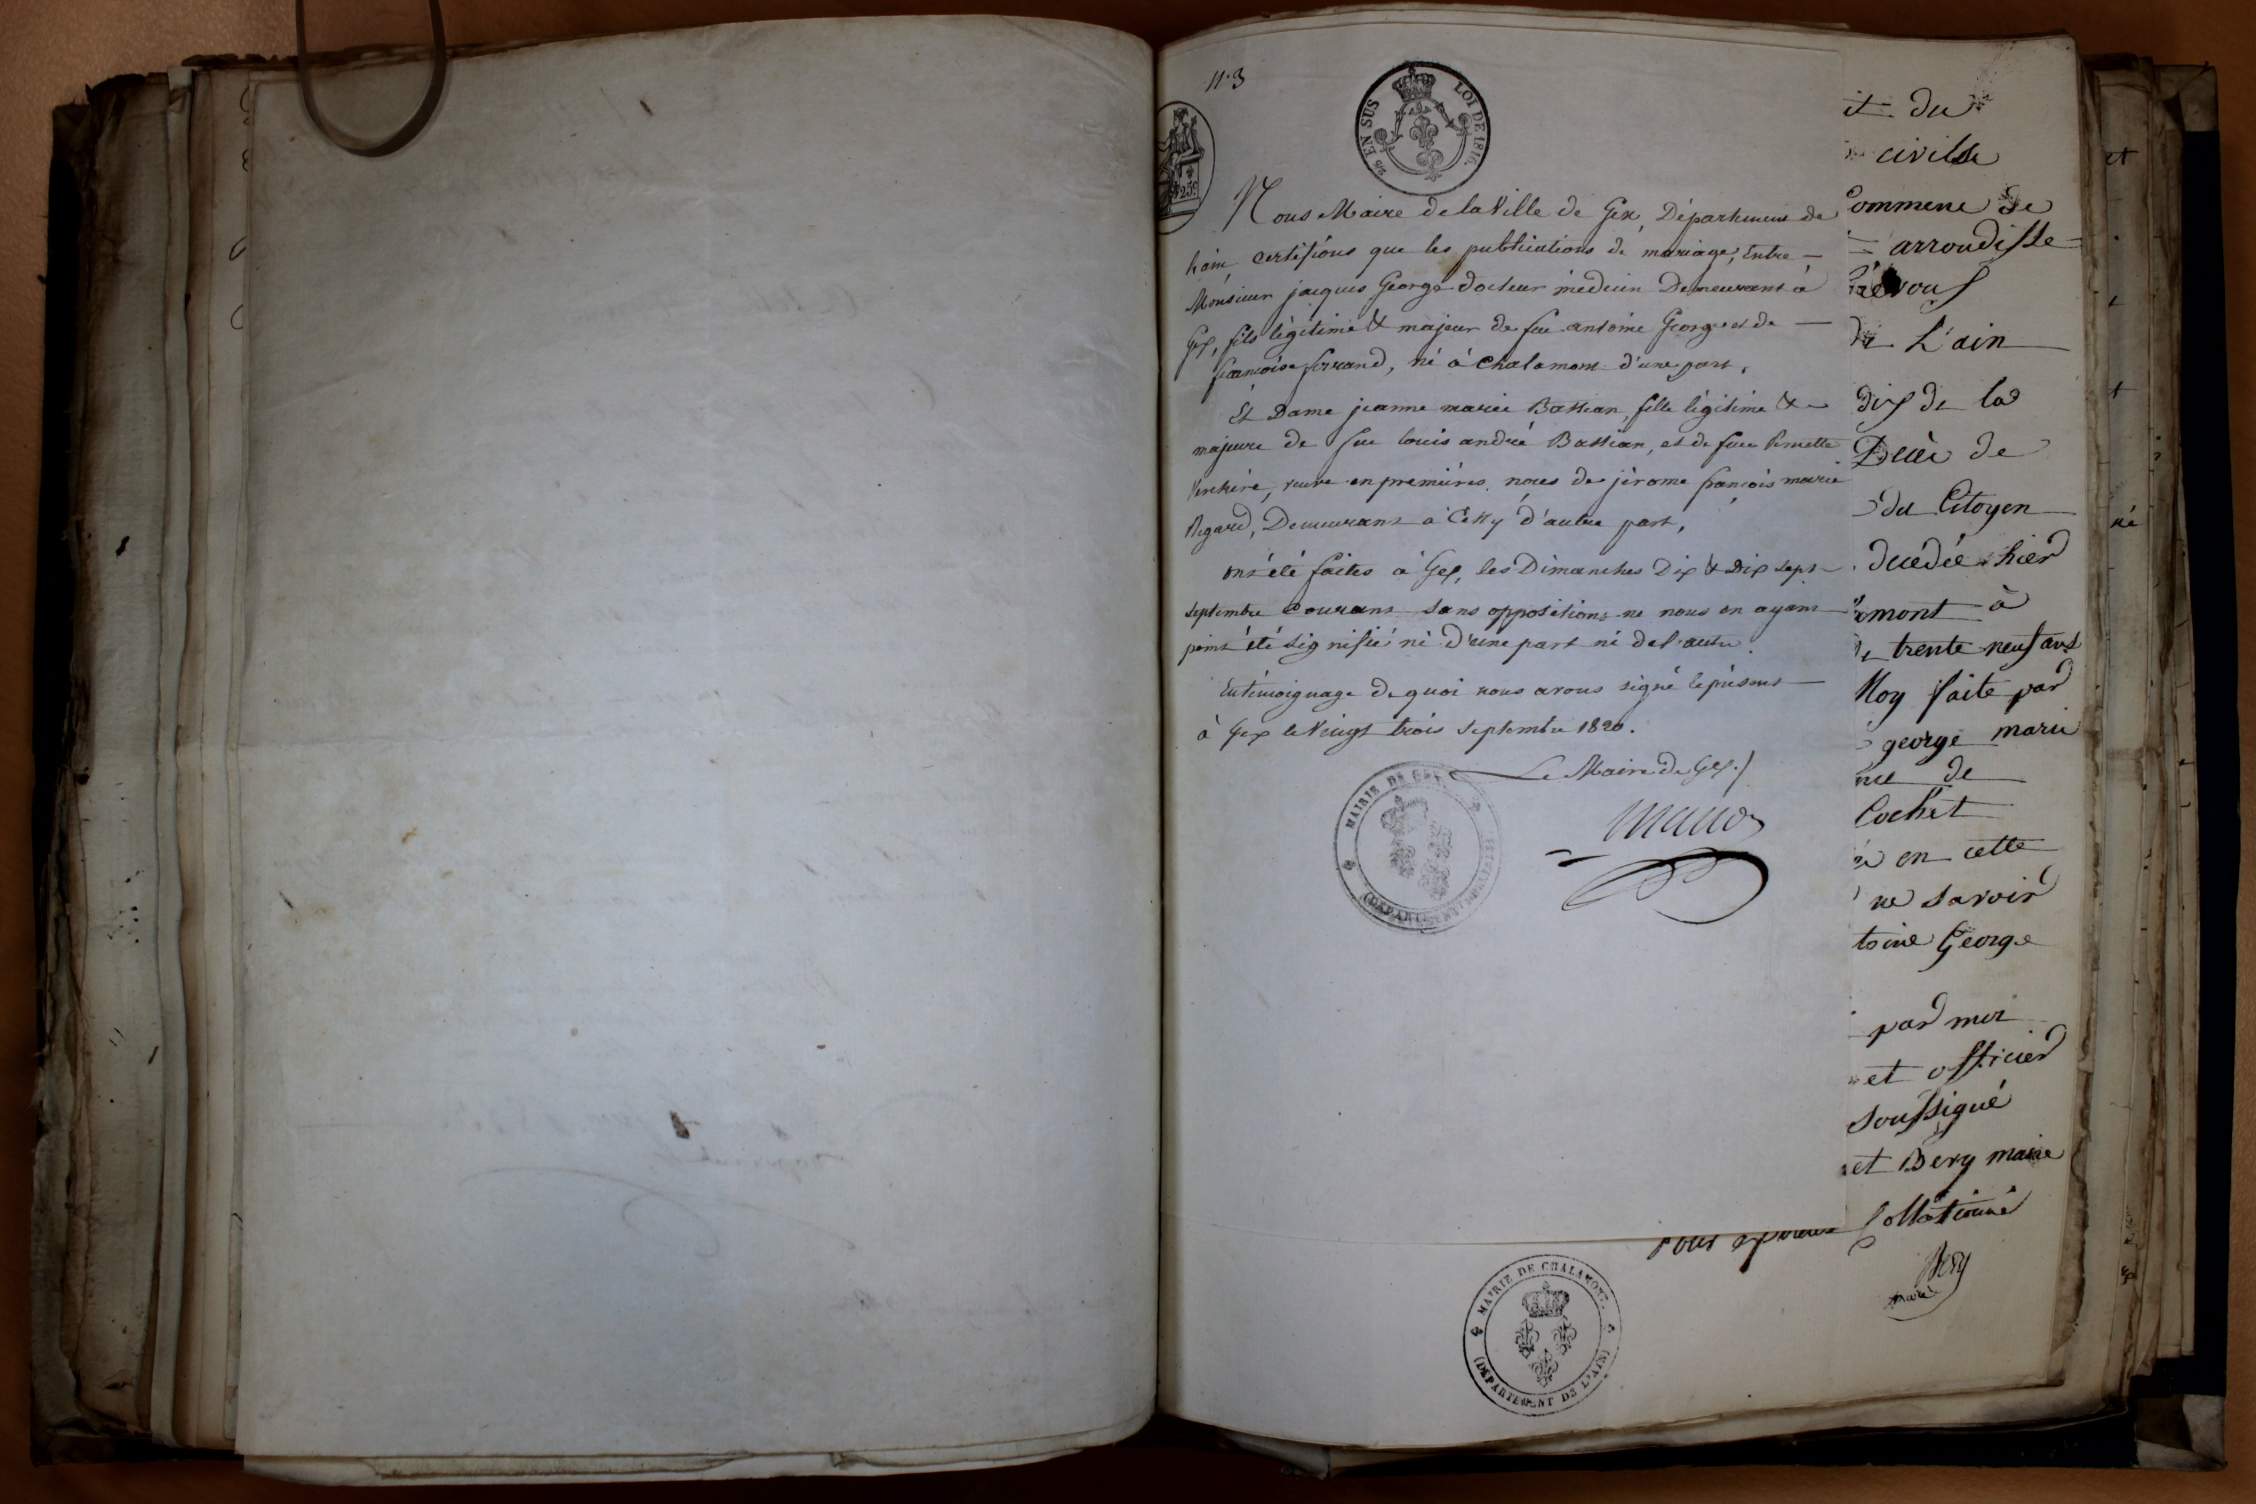 n.3
2/10 EN SUS LOI DE 1816.
25c
Nous Maire de la Ville de Gex, Département de
l'ain, certifions que les publications de mariage, entre
Monsieur jacques George docteur médecin Demeurant à
Gex, fils légitime & majeur de feu antoine George et de
françoise ferrand, né à Chalamont d'une part,
Et Dame jeanne marie Bastian, fille légitime &
majeure de feu louis andré Bastian, et de feue Pernette
Verchère, veuve en premières noces de jérome françois marie
Regard, Demeurant à Cessy d'autre part,
ont été faites à Gex, les Dimanches Dix & Dix sept
septembre Courant sans oppositions ne nous en ayant
point été signifié ni d'une part ni de l'autre.
En témoignage de quoi nous avons signé le présent
à Gex le Vingt trois septembre 1820.
Le Maire de Gex
MAIRIE DE GEX
(DÉPARTEMENT DE L'AIN)
it du
civile
Commene de
arrondisse
Trévoux
de L'ain
dix de la
Décès de
du Citoyen
décédée hier
mont à
de trente neuf ans
Moy faite par
george marie
nce de
Cochet
en cette
ne savoir
toine George
par moi
et officier
soussigné
et Bery maire
Pour expédition Collationné
Bery
maire
MAIRIE DE CHALAMONT.
(DÉPARTEMENT DE L'AIN)
et
t
né